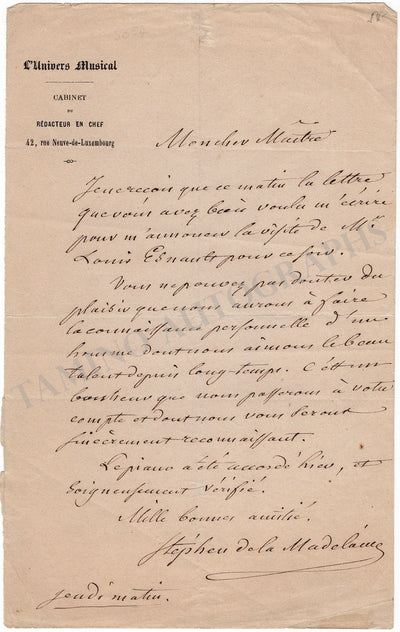 L'Univers Musical
CABINET
DU
RÉDACTEUR EN CHEF
42, rue Neuve-de-Luxembourg
Mon cher Maître
Je ne reçois que ce matin la lettre
que vous avez bien voulu m'écrire
pour m'annoncer la visite de Mr
Louis Esnault pour ce soir.
Vous ne pouvez pas douter du
plaisir que nous aurons à faire
la connaissance personnelle d'un
homme dont nous aimons le beau
talent depuis long-temps. C'est un
bonheur que nous passerons à votre
compte et dont nous vous serons
sincèrement reconnaissant.
Le piano a été accordé hier, et
soigneusement vérifié.
Mille bonnes amitié.
Stéphen de la Madelaine
jeudi matin.
TAMINO AUTOGRAPHS